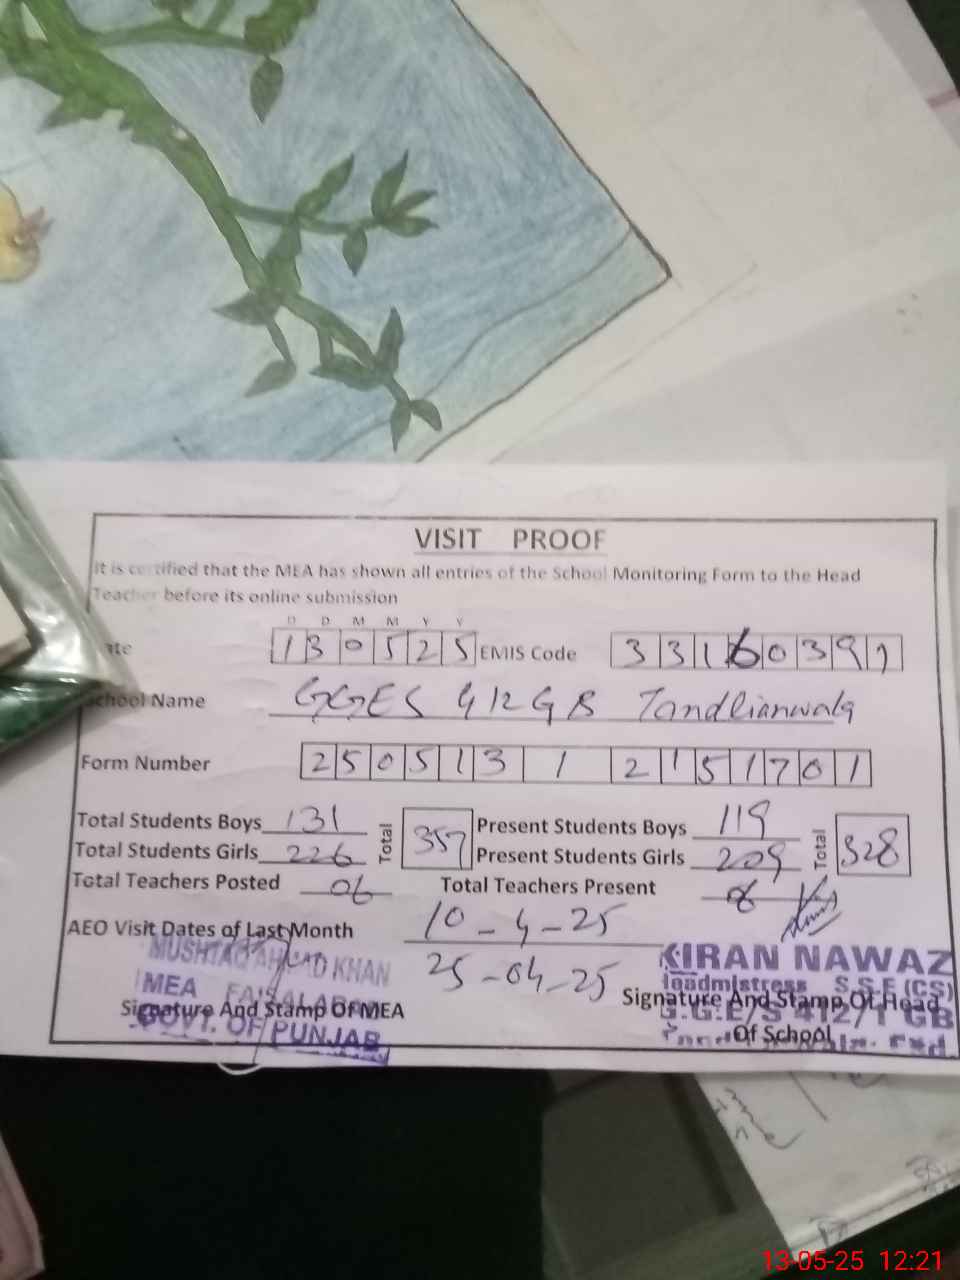 VISIT PROOF
It is certified that the MEA has shown all entries of the School Monitoring Form to the Head
Teacher before its online submission
D D M M Y Y
ate 1 3 0 5 2 5 EMIS Code 3 3 1 6 0 3 9 1
School Name GGES 412 GB Tandlianwala
Form Number 2 5 0 5 1 3 1 2 1 5 1 7 0 1
Total Students Boys 131 Total 357 Present Students Boys 119 Total 328
Total Students Girls 226 Present Students Girls 209
Total Teachers Posted 06 Total Teachers Present
AEO Visit Dates of Last Month 10-4-25
25-04-25
MUSHTAQ AHMAD KHAN
MEA FAISALABAD
Signature And Stamp Of MEA
GOVT. OF PUNJAB
KIRAN NAWAZ
Headmistress S.S.E (CS)
Signature And Stamp Of Head
G.G.E/S 412/1 GB
Of School
13-05-25 12:21